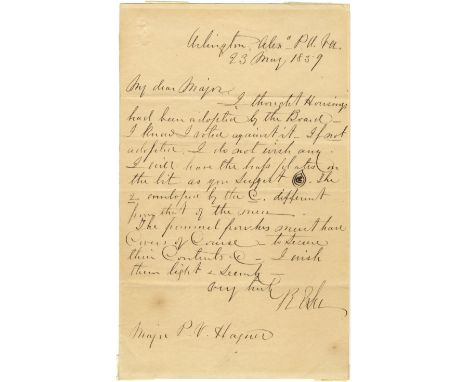 Arlington, Alexa P.O. Va.
23 May 1859
My dear Major
I thought Housings
had been adopted by the Board -
I know I acted against it - If not
adopted, I do not wish any.
I will have the brass plates on
the bit as you suggest C. The
2 enveloped by the C. different
from that of the men.
The pommel pouches must have
Covers of Course - to secure
their Contents & - I wish
them light & Secure -
Very truly
R E Lee
Major P. V. Hagner